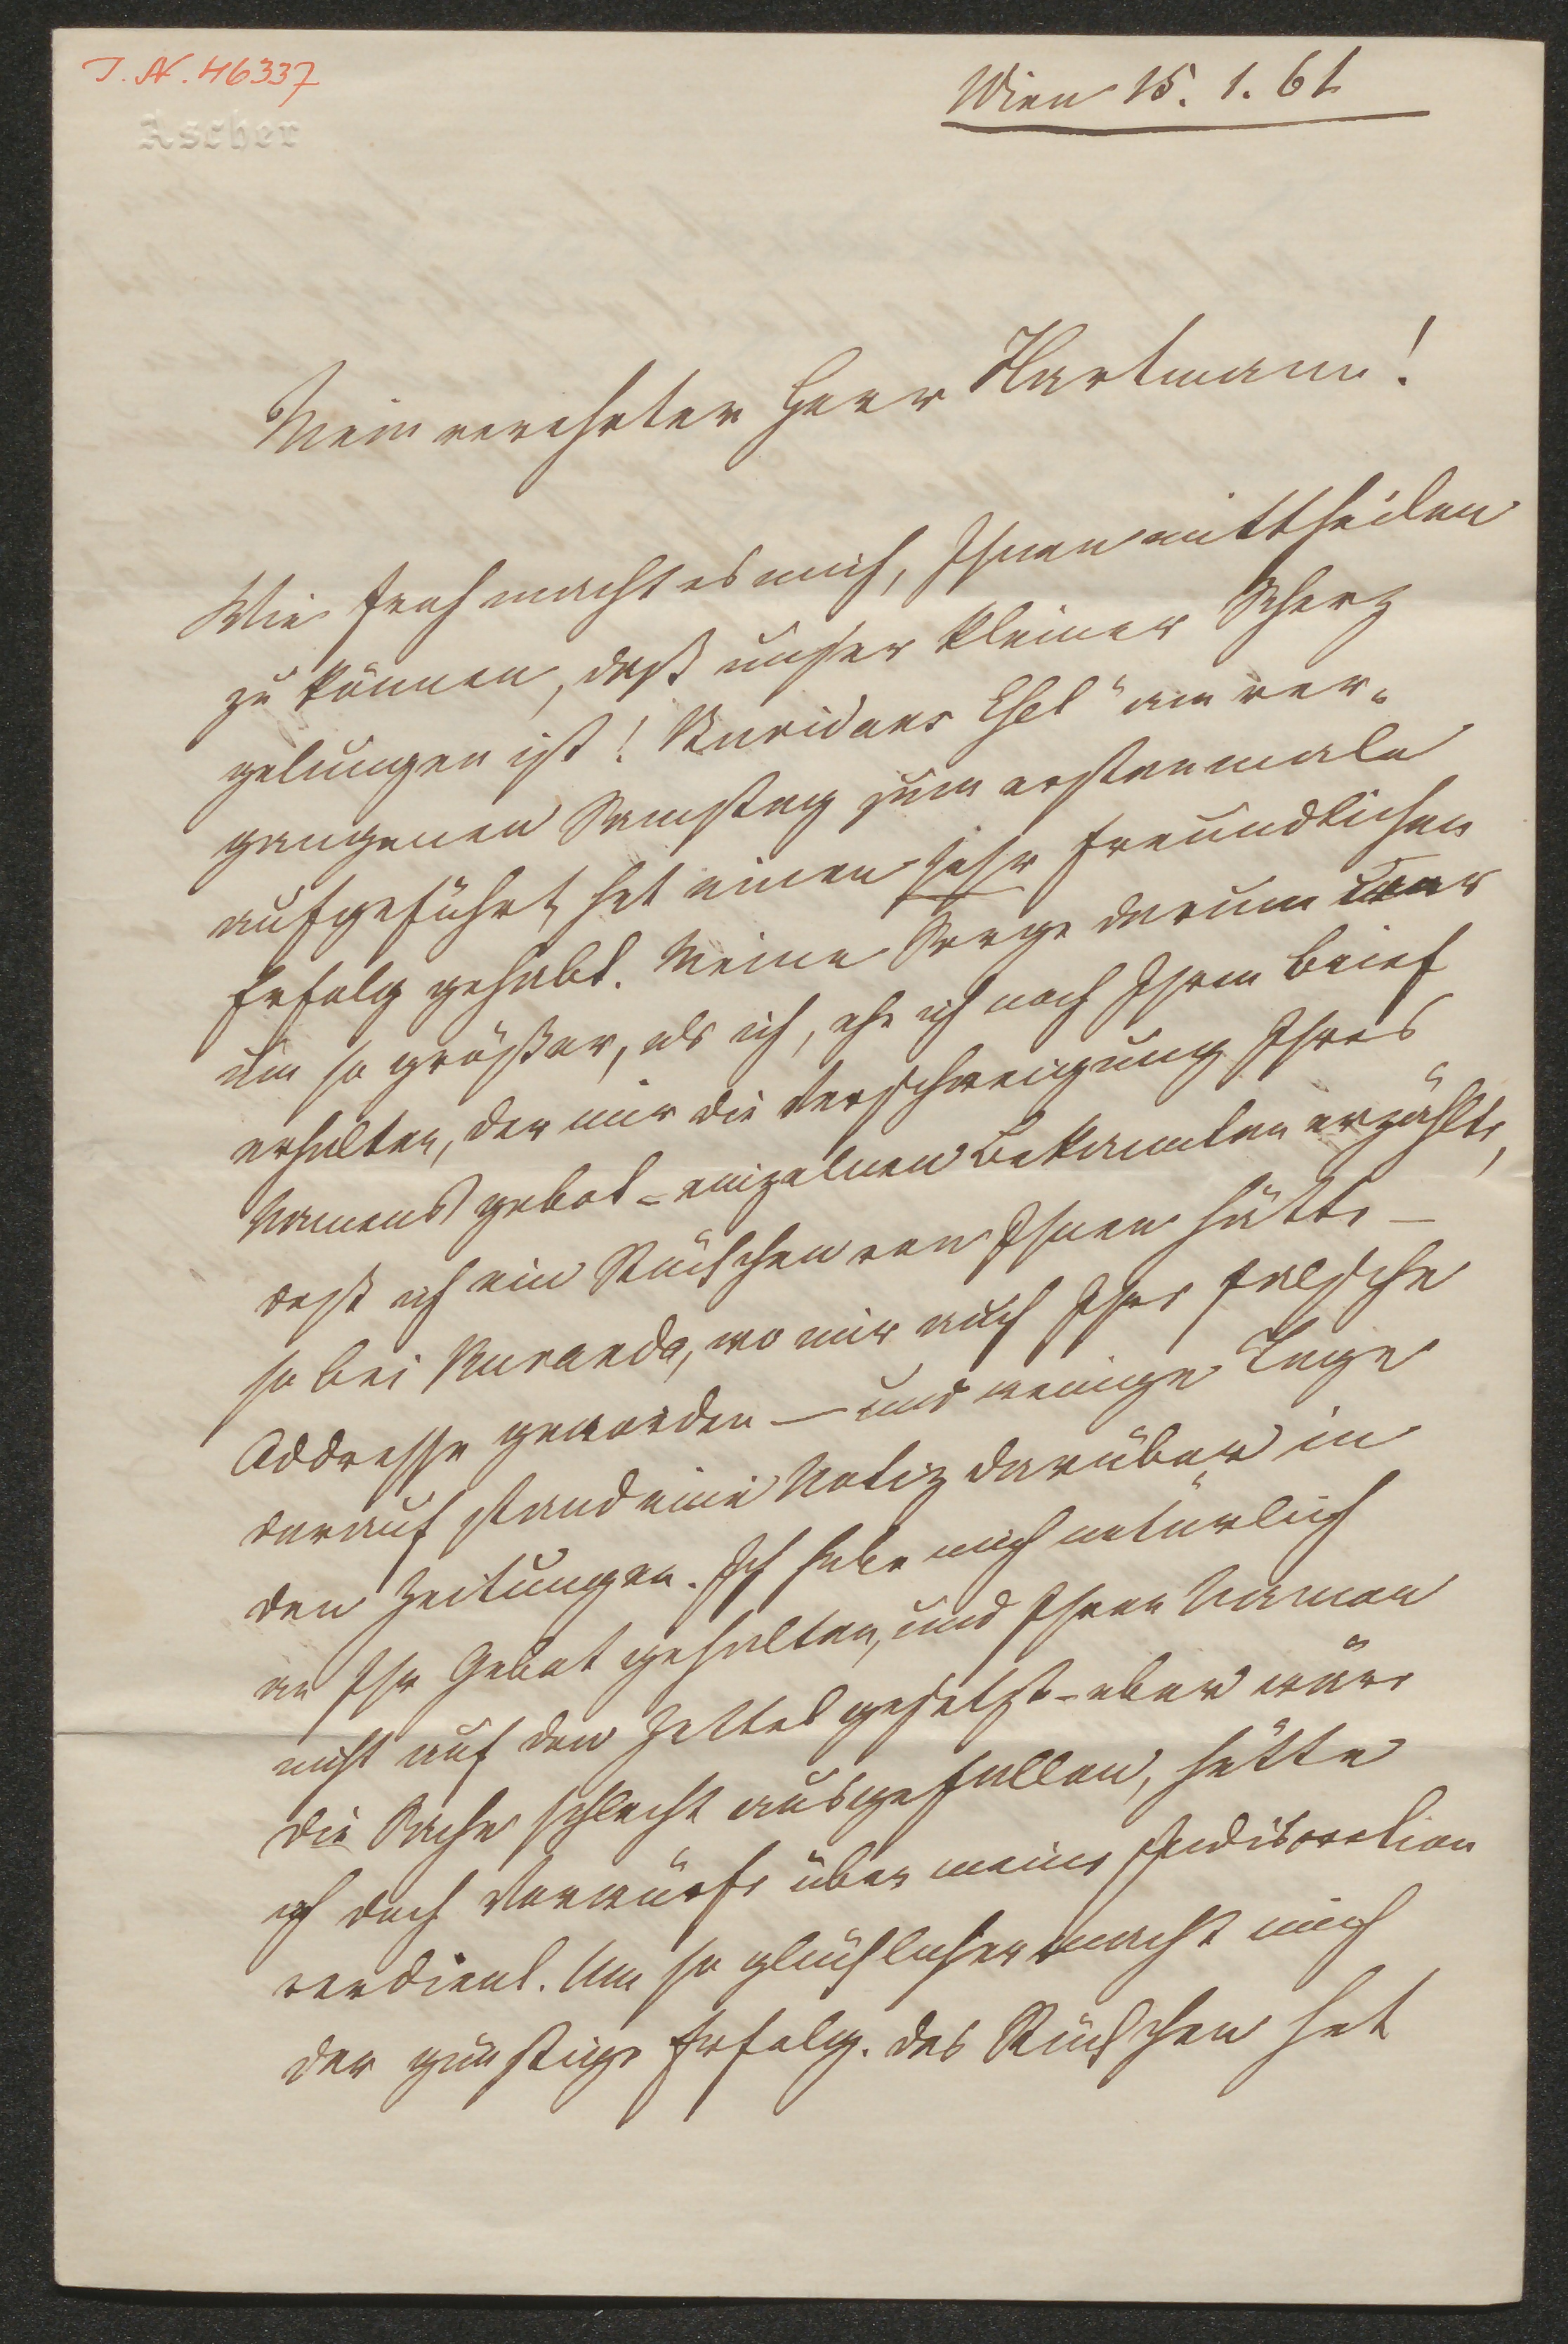 I. N. 46337
Ascher
Wien 15. 1. 61
Mein verehrter Herr Hartmann!
Wie froh macht es mich, Ihnen mittheilen
zu können, daß unser kleiner Scherz
gelungen ist! Buridans Esel" am ver-
gangenen Samstag zum erstenmale
aufgeführt, hat einen sehr freundlichen
Erfolg gehabt. Meine Sorge darum war
um so größer, als ich, ehe ich noch Ihren Brief
erhalten, der mir die Verschweigung Ihres
Namens gebot - einzelnen Bekannten erzählte,
daß ich ein Stückchen von Ihnen hätte -
so bei Kuranda, wo mir auch Ihre falsche
Addresse geworden - und wenige Tage
darauf stand eine Notiz darüber in
den Zeitungen. Ich habe mich natürlich
an Ihr Gebot gehalten, und Ihren Namen
nicht auf den Zettel gesetzt - aber wäre
die Sache schlecht ausgefallen, hätte
ich doch Vorwürfe über meine Indiscretion
verdient. Um so glücklicher macht mich
der günstige Erfolg. Das Stückchen hat